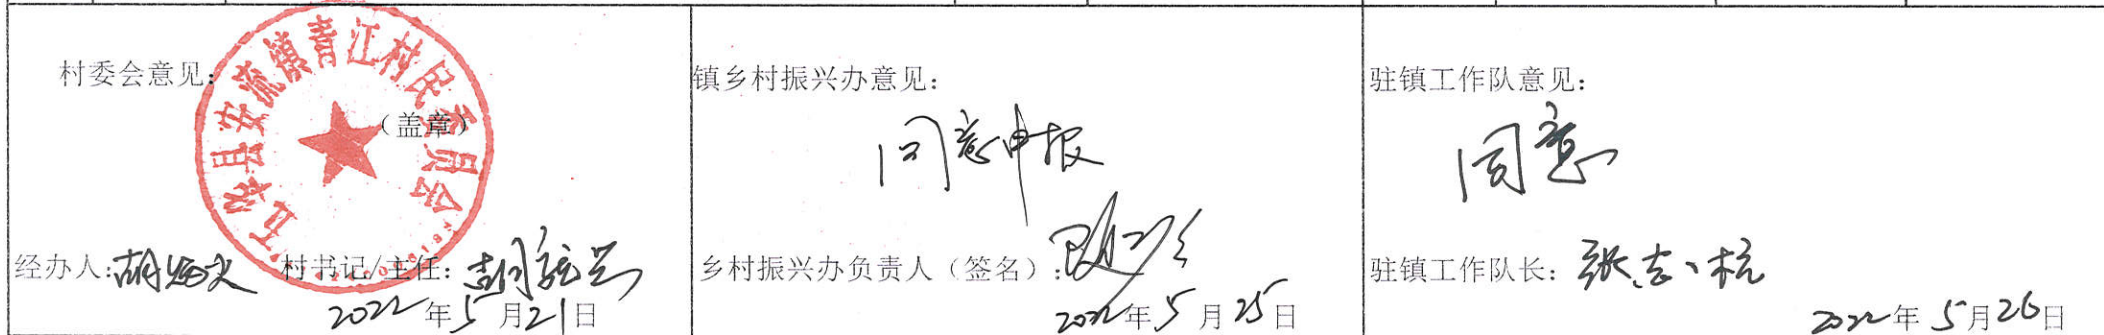 村委会意见：
五华县安流镇青江村民委员会
（盖章）
经办人：胡 村书记/主任：胡
2022年5月21日
镇乡村振兴办意见：
同意申报
乡村振兴办负责人（签名）：
2022年5月25日
驻镇工作队意见：
同意
驻镇工作队长：张志杭
2022年5月26日